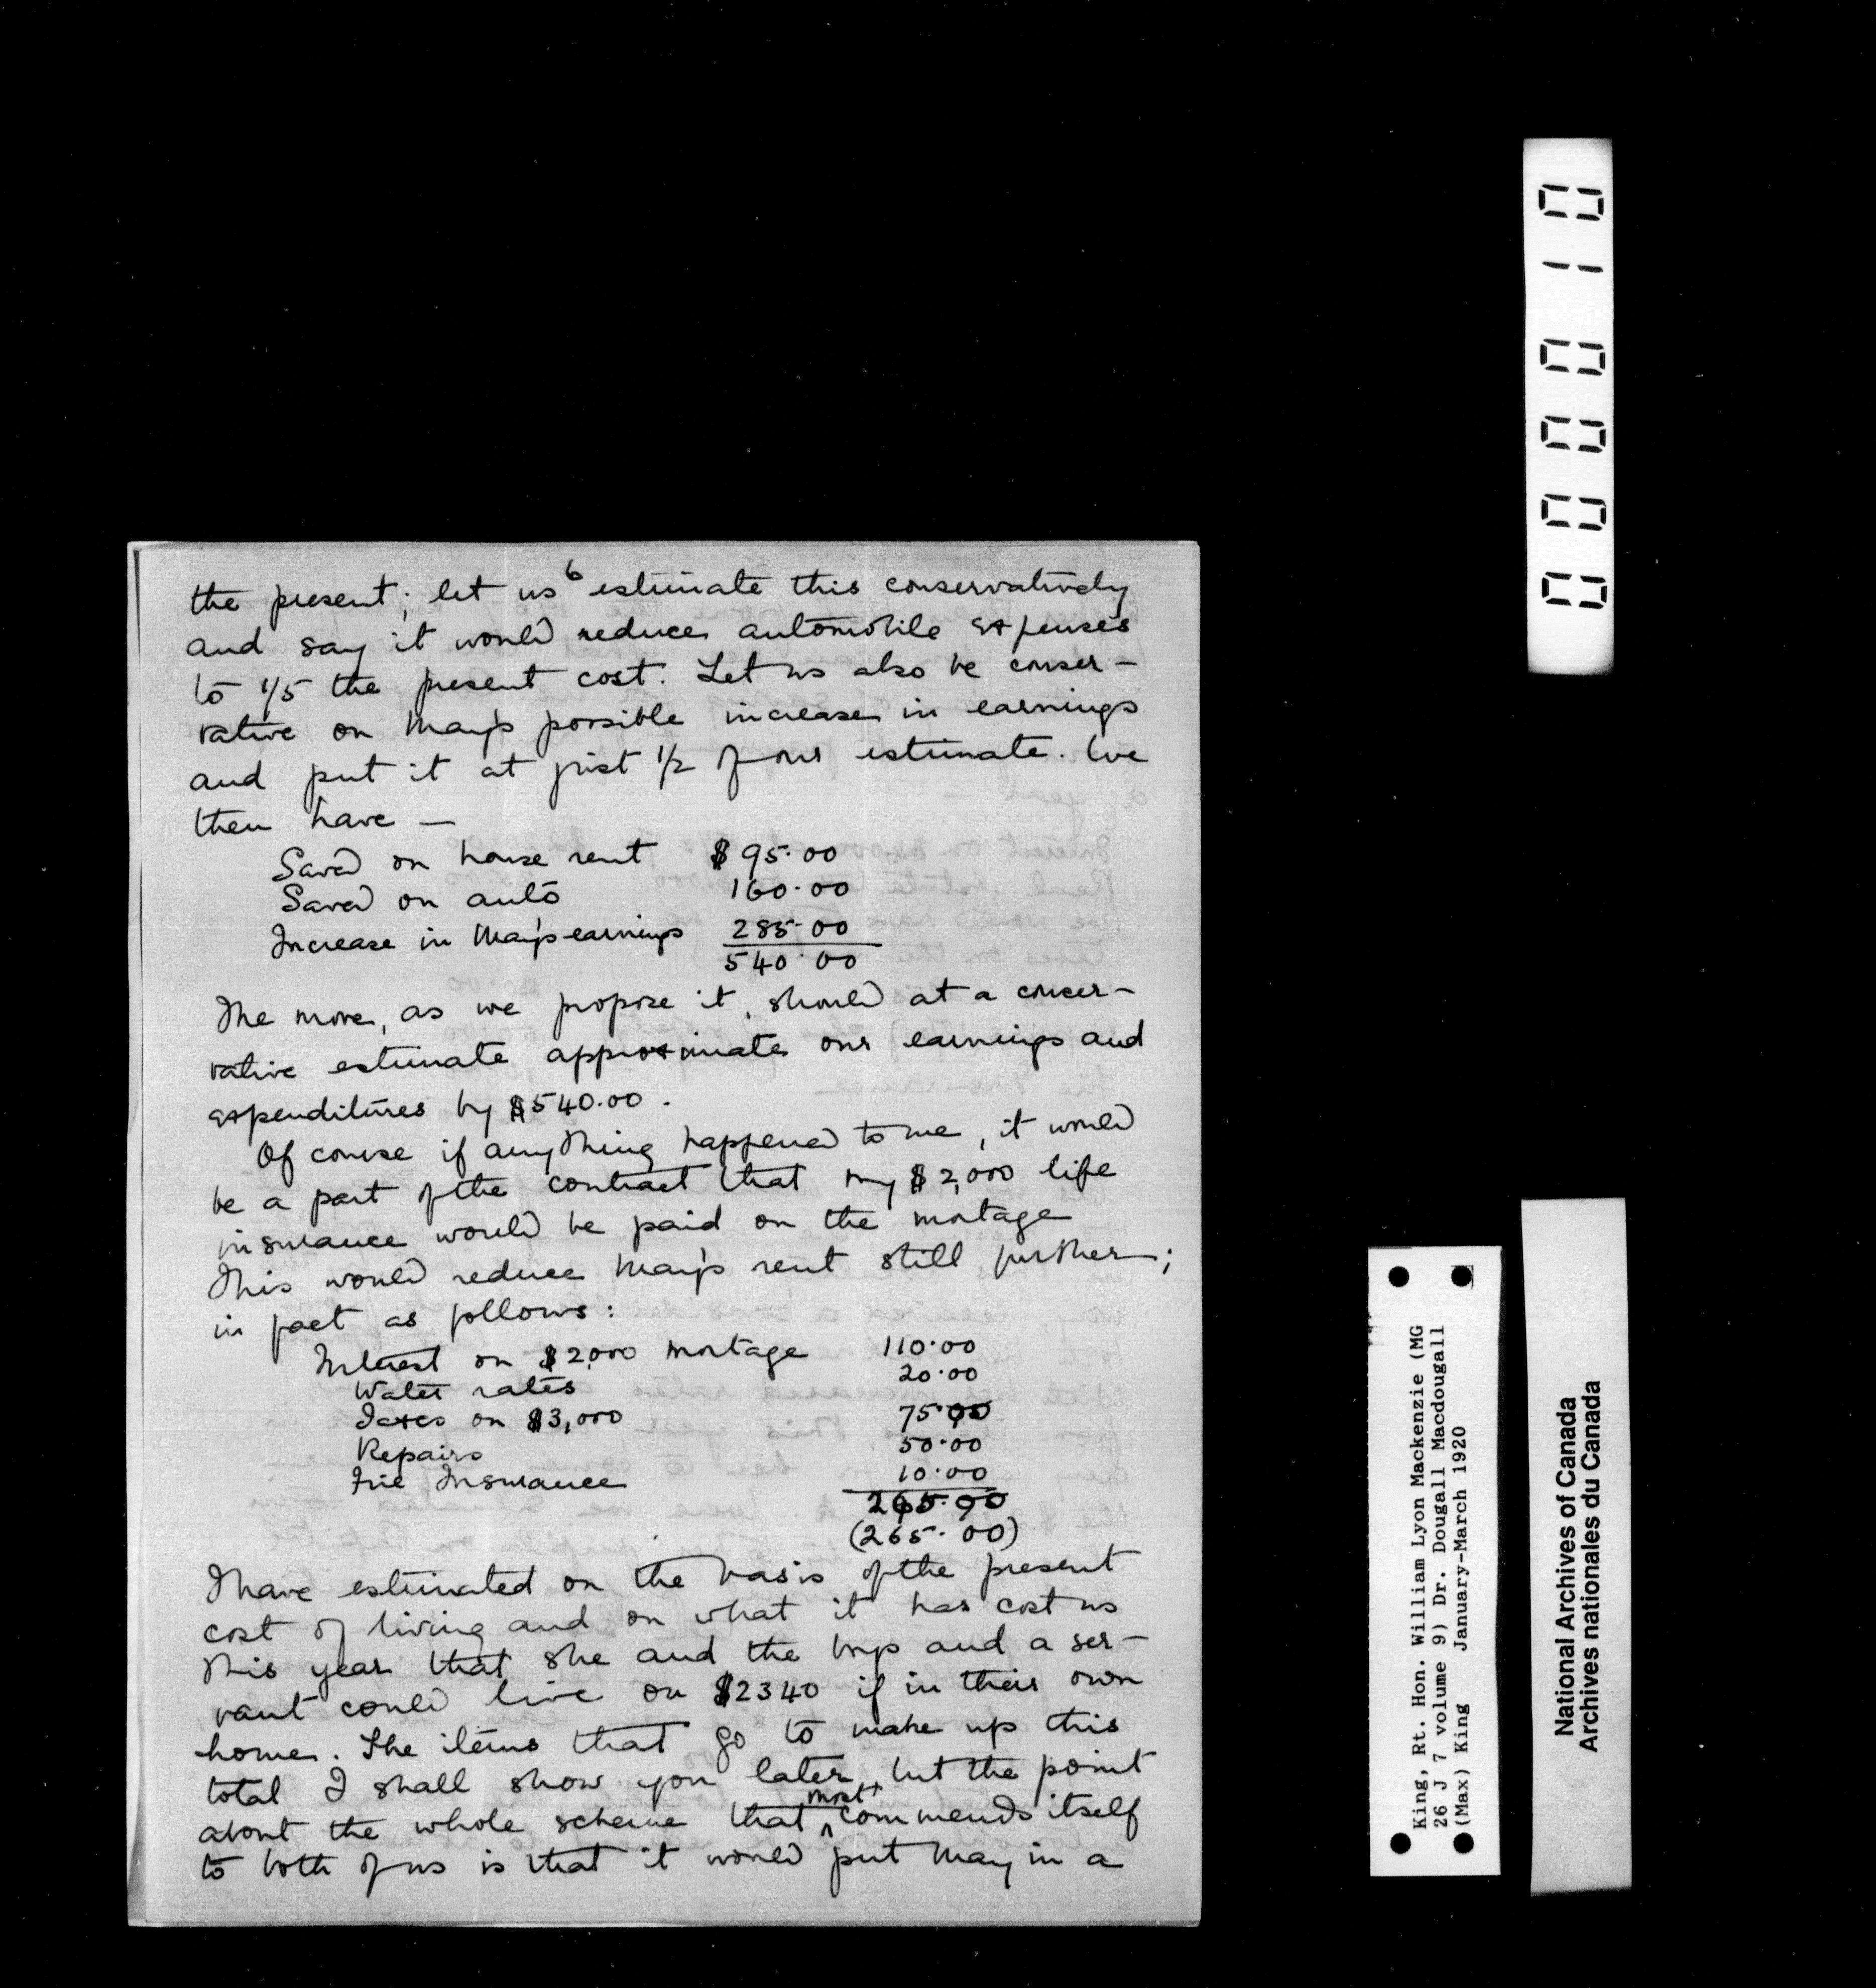 6
the present; let us estimate this conservatively
and say it would reduce automobile expenses
to 1/5 the present cost. Let us also be conser-
vative on May's possible increase in earnings
and put it at just 1/2 of our estimate. We
then have —
Saved on house rent $95.00
Saved on auto 160.00
Increase in May's earnings 285.00
540.00
The move, as we propose it, should at a conser-
vative estimate approximate our earnings and
expenditures by $540.00.
Of course if anything happened to me, it would
be a part of the contract that my $2,000 life
insurance would be paid on the mortage
This would reduce May's rent still further;
in fact as follows:
Interest on $2,000 mortage 110.00
Water rates 20.00
Taxes on $3,000 75.00
Repairs 50.00
Fire Insurance 10.00
265.00
(265.00)
I have estimated on the basis of the present
cost of living and on what it has cost us
this year that she and the boys and a ser-
vant could live on $2340 if in their own
home. The items that go to make up this
total I shall show you later, but the point
about the whole scheme that most commends itself
to both of us is that it would put May in a
000010
King, Rt. Hon. William Lyon Mackenzie (MG
26 J 7 volume 9) Dr. Dougall Macdougall
(Max) King January-March 1920
National Archives of Canada
Archives nationales du Canada